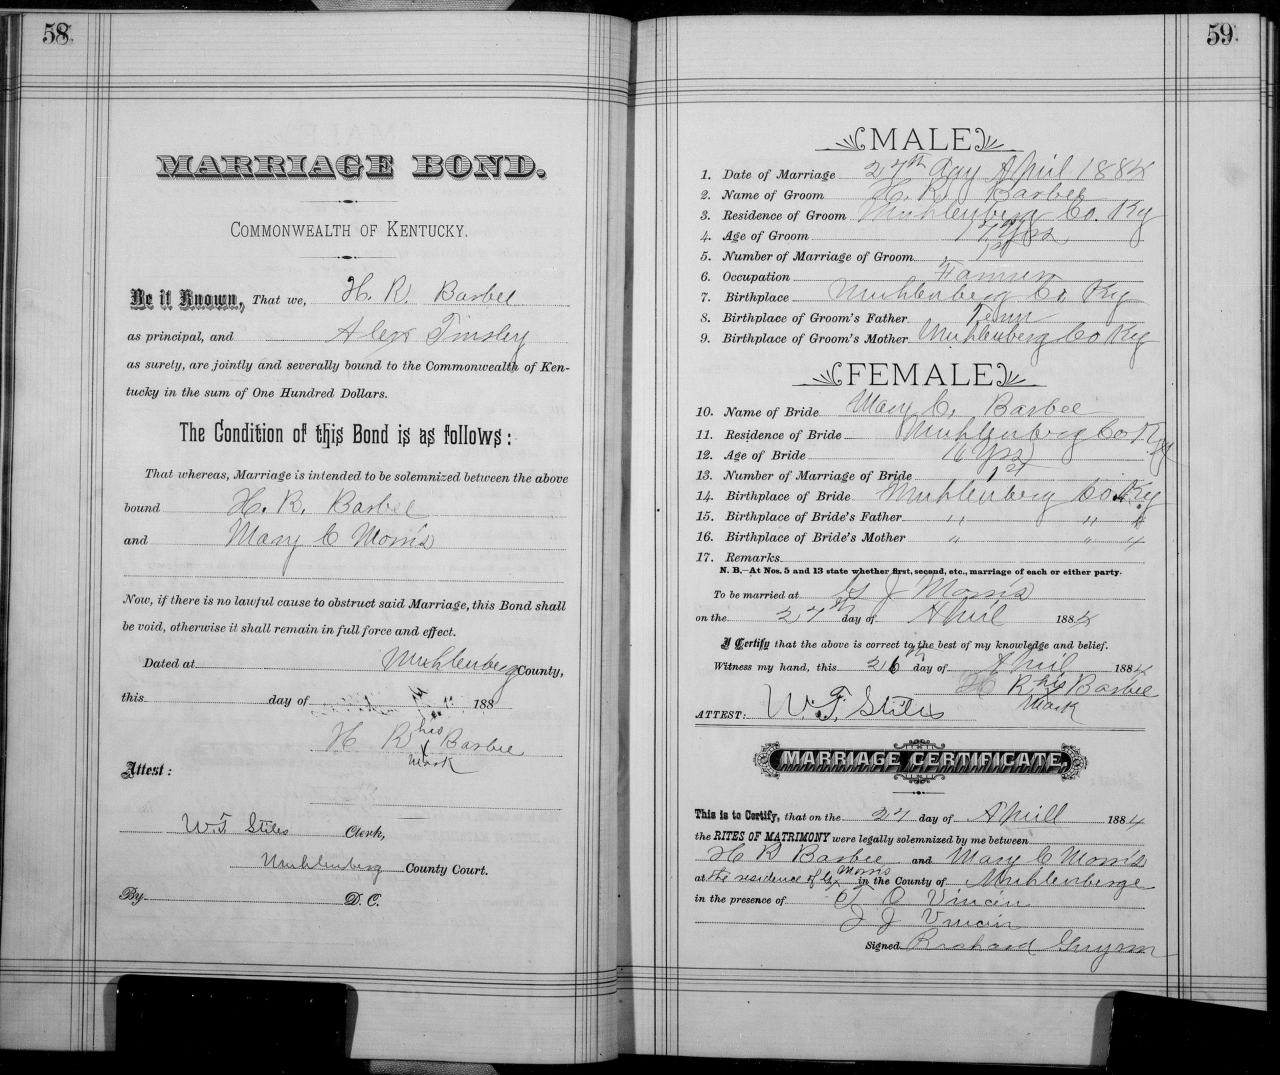 58
MARRIAGE BOND.
COMMONWEALTH OF KENTUCKY.
Be it Known, That we, H. R. Barbee
as principal, and Alex Tinsley
as surety, are jointly and severally bound to the Commonwealth of Ken-
tucky in the sum of One Hundred Dollars.
The Condition of this Bond is as follows:
That whereas, Marriage is intended to be solemnized between the above
bound H. R. Barbee
and Mary C Morris
Now, if there is no lawful cause to obstruct said Marriage, this Bond shall
be void, otherwise it shall remain in full force and effect.
Dated at Muhlenberg County,
this day of 188
H R his x mark Barbee
Attest:
W.F Stiles Clerk,
Muhlenberg County Court.
By D. C.
59
MALE
1. Date of Marriage 27th day April 1884
2. Name of Groom H. R. Barbee
3. Residence of Groom Muhlenberg Co. Ky
4. Age of Groom Yrs
5. Number of Marriage of Groom 1st
6. Occupation Farmer
7. Birthplace Muhlenberg Co. Ky
8. Birthplace of Groom's Father Tenn
9. Birthplace of Groom's Mother Muhlenberg Co Ky
FEMALE
10. Name of Bride Mary C. Barbee
11. Residence of Bride Muhlenberg Co Ky
12. Age of Bride 16 Yrs
13. Number of Marriage of Bride 1st
14. Birthplace of Bride Muhlenberg Co. Ky
15. Birthplace of Bride's Father " " "
16. Birthplace of Bride's Mother " " "
17. Remarks
N. B.—At Nos. 5 and 13 state whether first, second, etc., marriage of each or either party.
To be married at G J Morris
on the 27th day of April 1884
I Certify that the above is correct to the best of my knowledge and belief.
Witness my hand, this 26th day of April 1884
H R his x mark Barbee
ATTEST: W. F. Stiles
MARRIAGE CERTIFICATE.
This is to Certify, that on the 27 day of Aprill 1884
the RITES OF MATRIMONY were legally solemnized by me between
H R Barbee and Mary C Morris
at the residence of Morris in the County of Muhlenberge
in the presence of Vincin
J J Vincin
Signed Richard Guynn